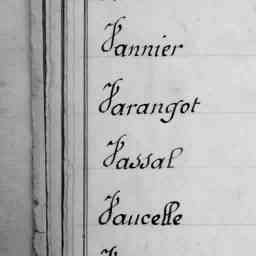 Vannier
Varangot
Vassal
Vaucelle